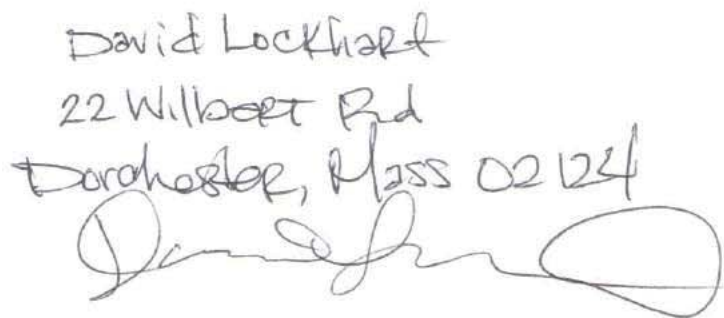 David Lockhart
22 Wilbert Rd
Dorchester, Mass 02124